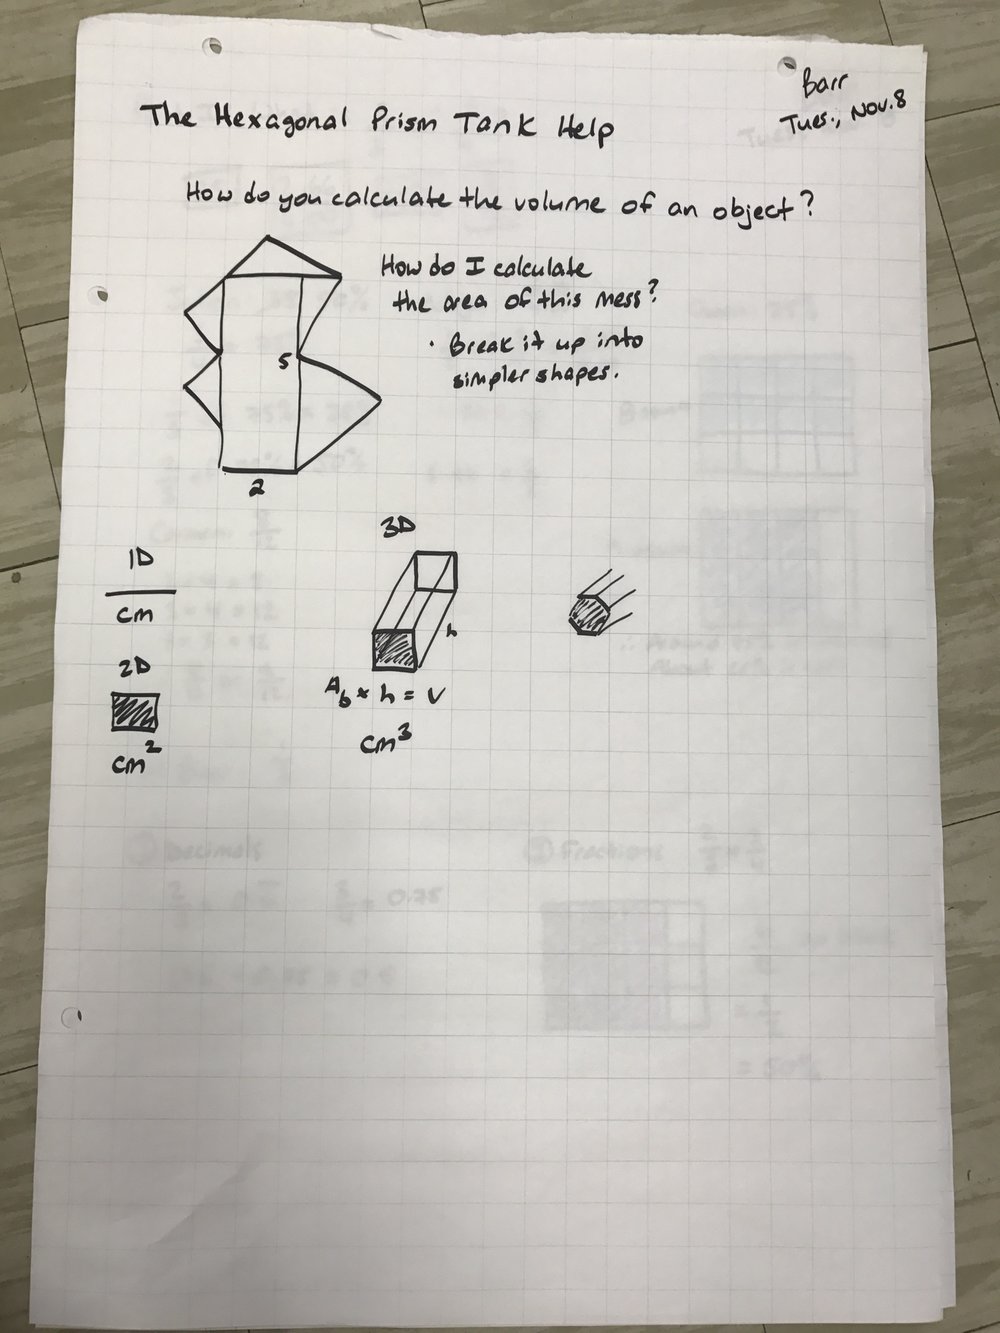 Barr
Tues., Nov. 8
The Hexagonal Prism Tank Help
How do you calculate the volume of an object?
How do I calculate
the area of this mess?
· Break it up into
simpler shapes.
5
2
1D
cm
2D
cm²
3D
h
A_b × h = V
cm³
① Decimals
② Fractions
= 0.75
= 50%